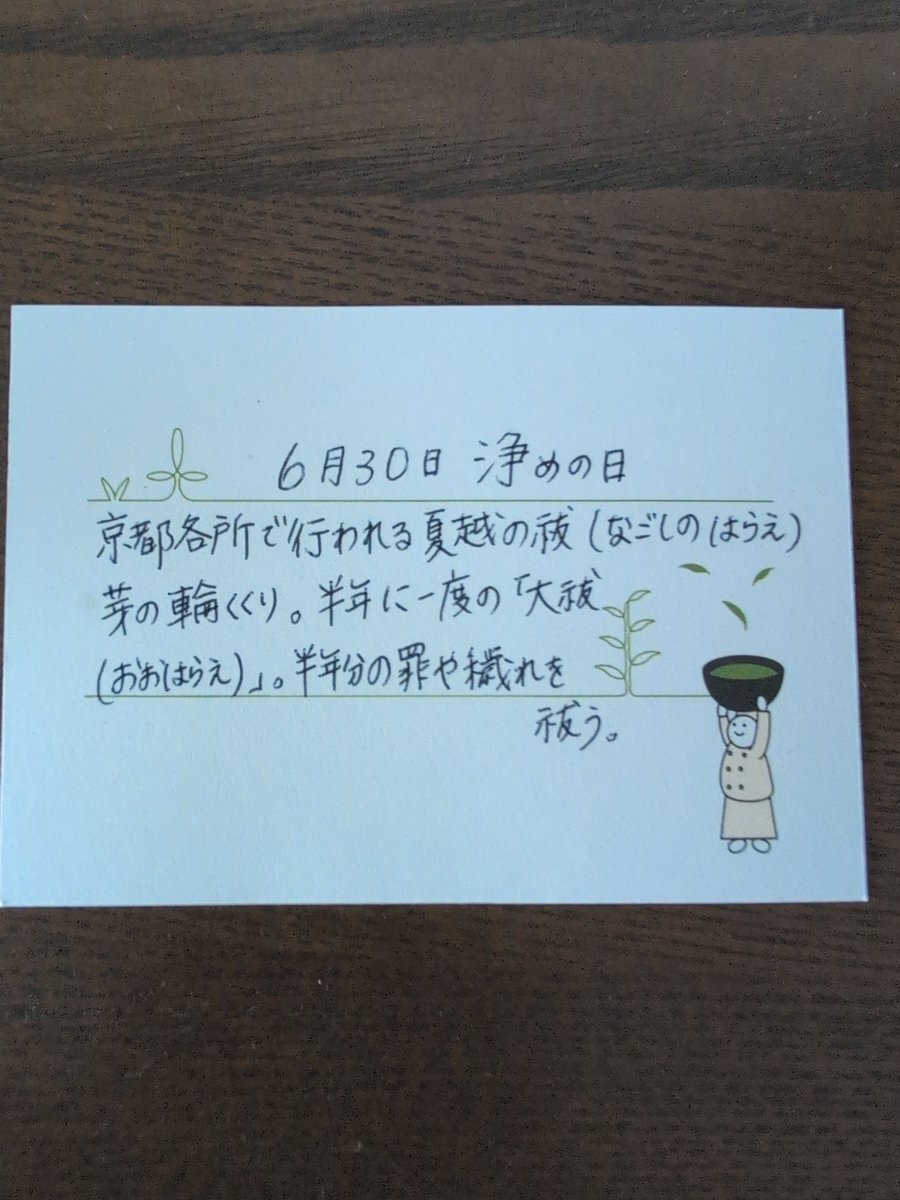 6月30日 浄めの日
京都各所で行われる夏越の祓(なごしのはらえ)
芽の輪くぐり。半年に一度の「大祓
(おおはらえ)」。半年分の罪や穢れを
祓う。